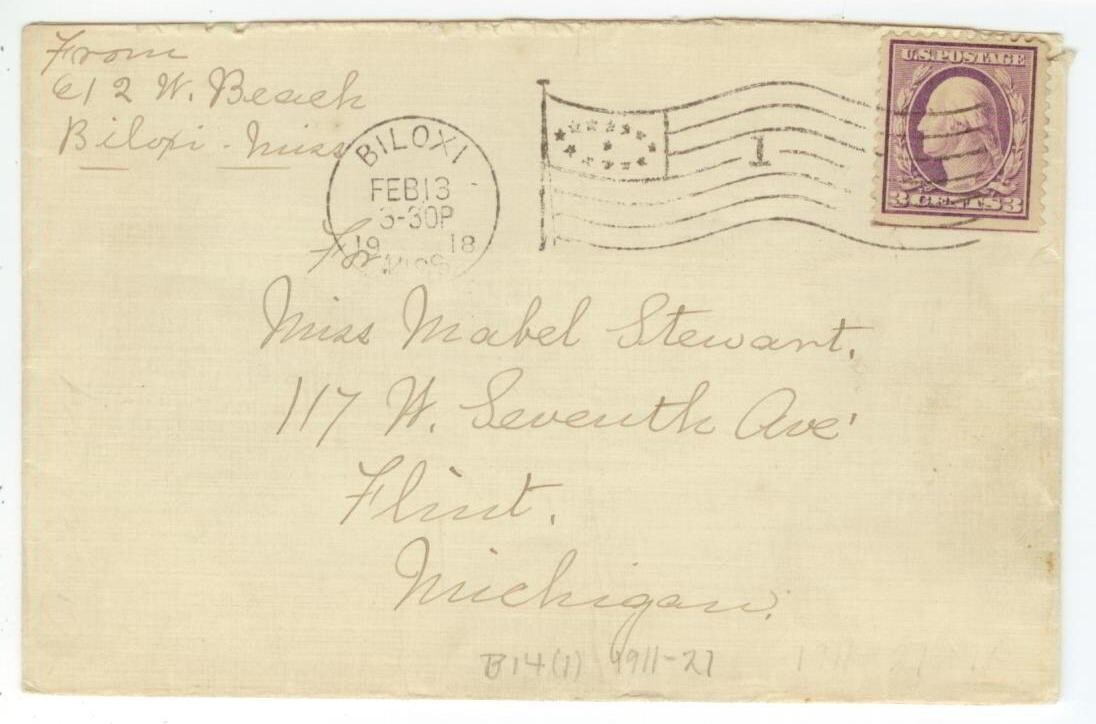 From
612 W. Beach
Biloxi - Miss
BILOXI
FEB 13
3-30P
19 18
MISS
1
U.S. POSTAGE
3 CENTS 3
For
Miss Mabel Stewart.
117 W. Seventh Ave'
Flint.
Michigan.
B14(1) 1911-21